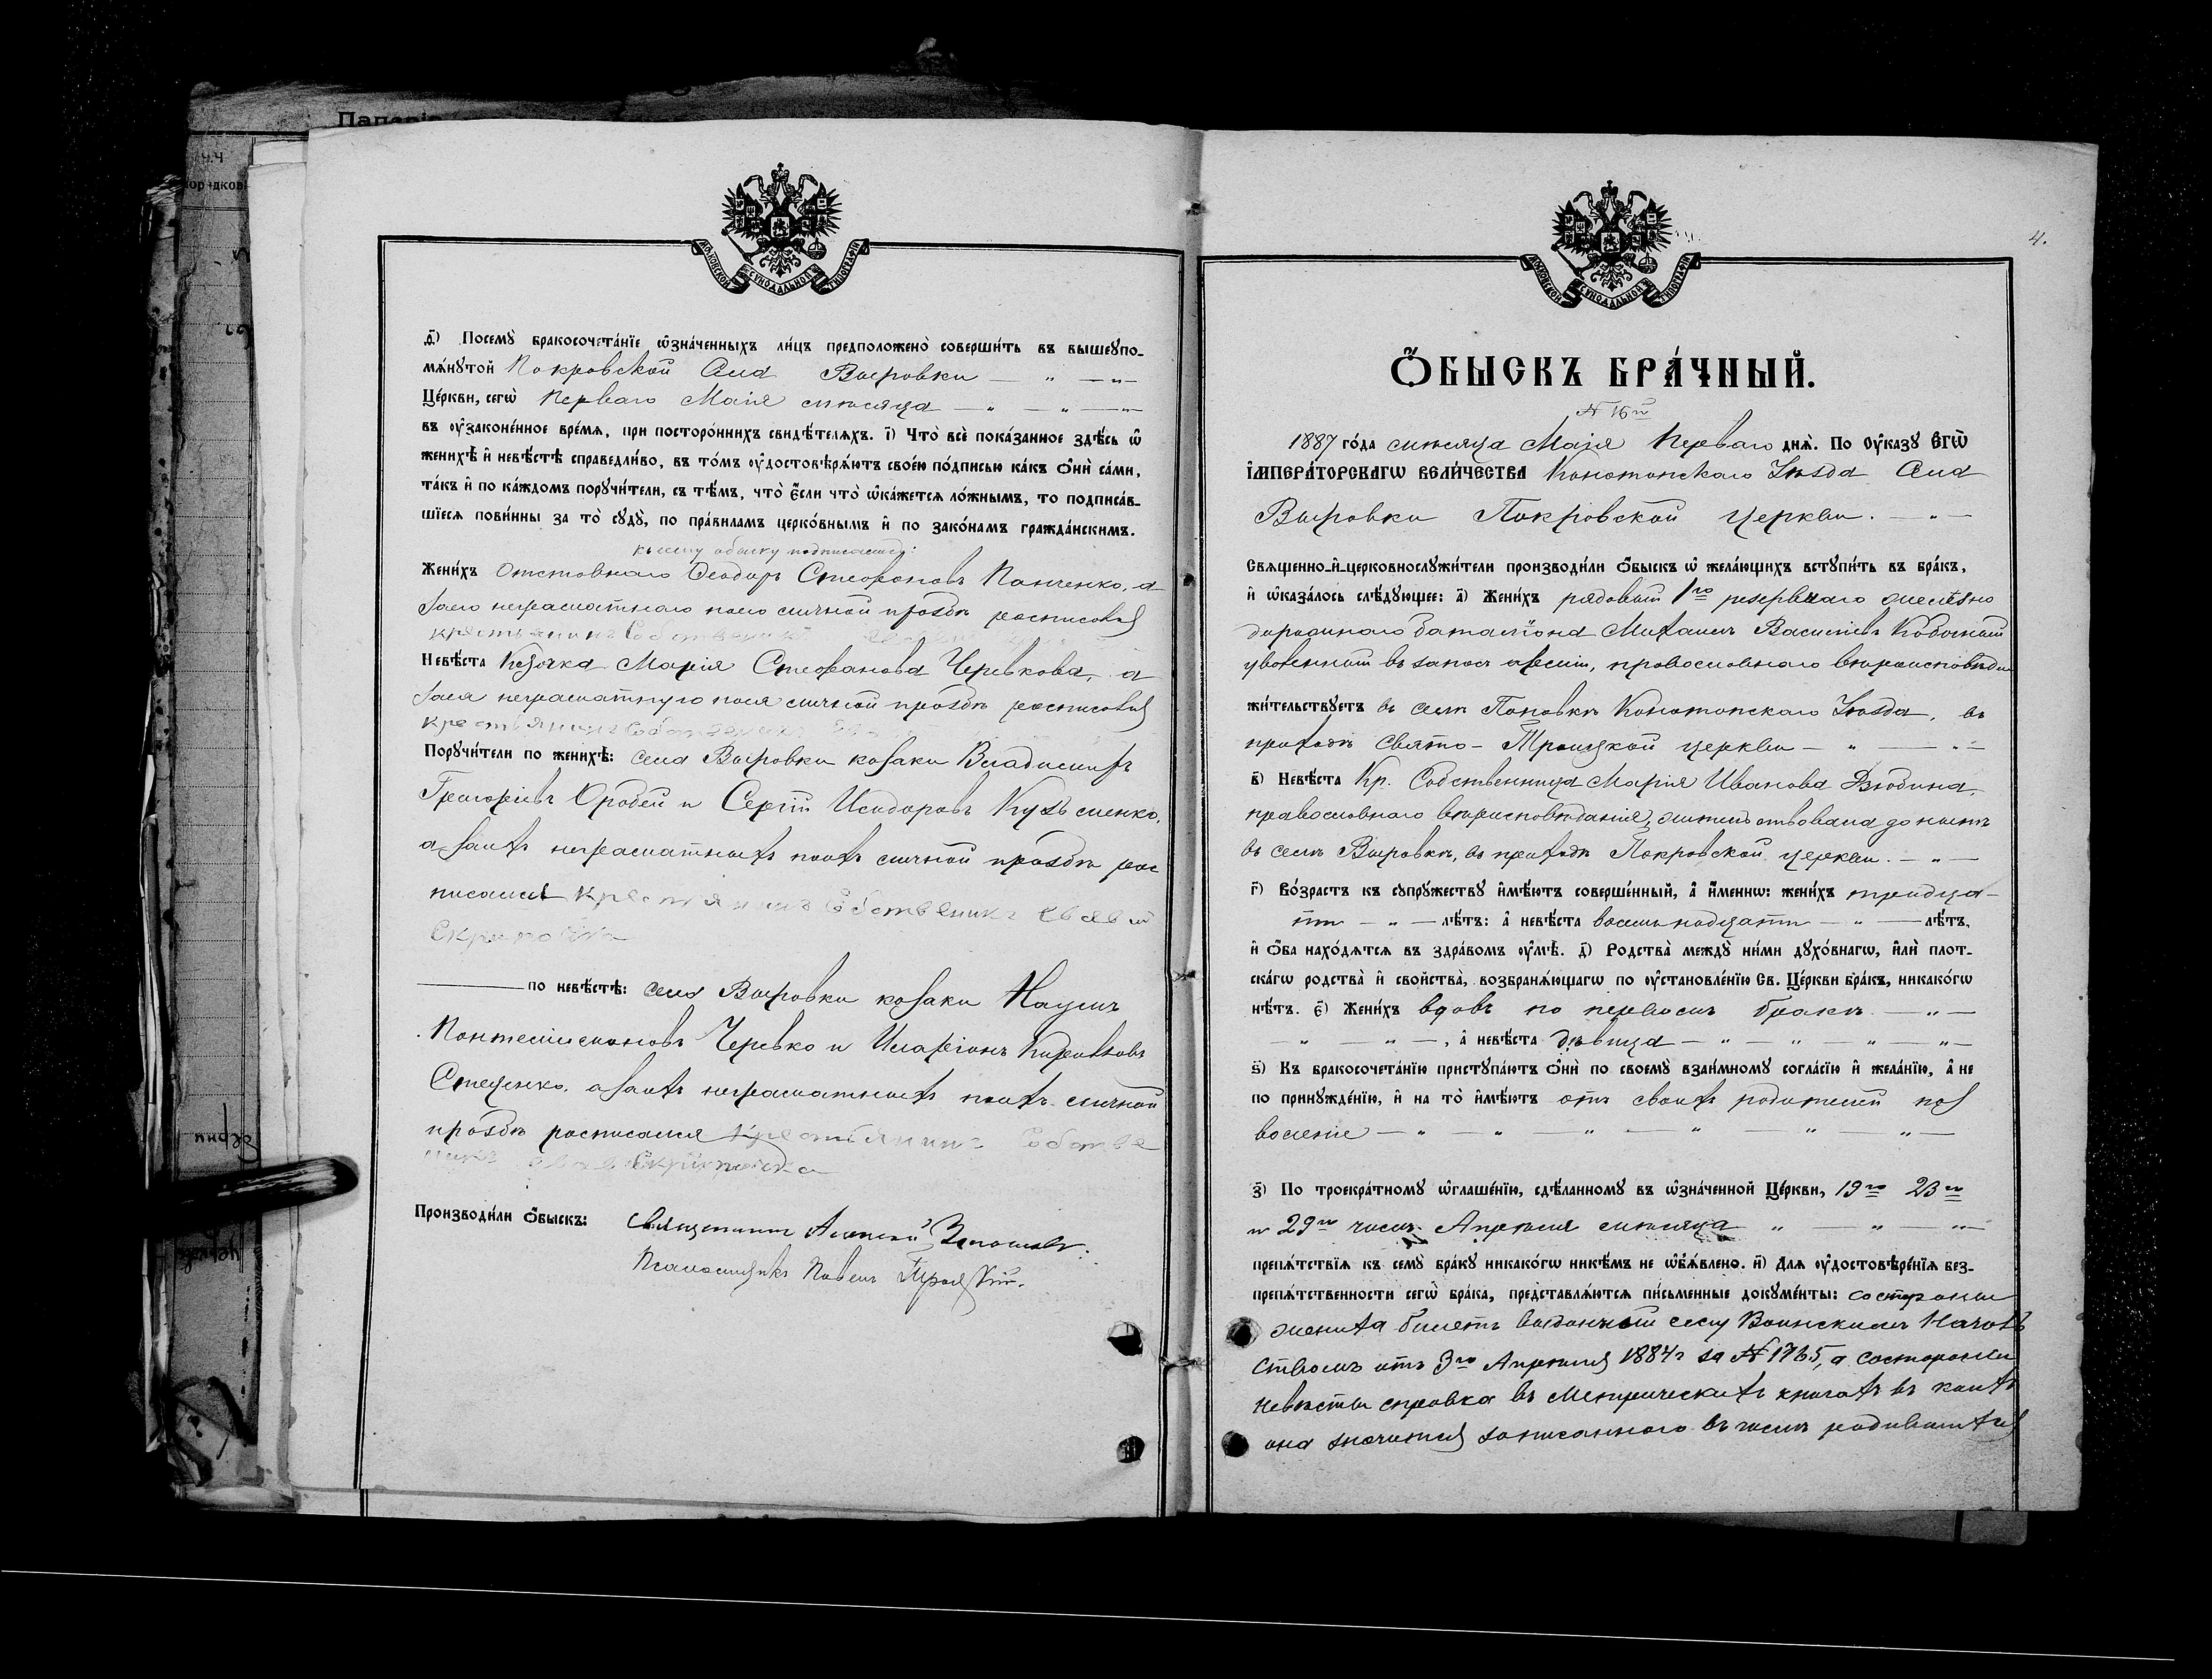 МОСКОВСКОЙ СУНОДАЛЬНОЙ ТИПОГРАФІИ
д҃) Посемꙋ̀ бракосочета́нїе ѡ҆зна́ченныхъ ли́цъ предположено̀ соверши́ть въ вышеꙋпо-
мѧ́нꙋтой Покровской Села Выровки
Це́ркви, сегѡ̀ перваго Маія мѣсяца
въ ᲂу҆законе́нное вре́мѧ, при посторо́ннихъ свидѣ́телѧхъ. і҃) Что̀ всѐ пока́занное здѣ́сь ѡ҆
женихѣ̀ и҆ невѣ́стѣ справедли́во, въ то́мъ ᲂу҆достовѣрѧ́ютъ свое́ю по́дписью ка́къ ѻ҆нѝ са́ми,
та́къ и҆ по ка́ждомъ порꙋчи́тели, съ тѣ́мъ, что̀ є҆́сли что̀ ѡ҆ка́жетсѧ ло́жнымъ, то подписа́в-
шїесѧ пови́нны за то̀ сꙋдꙋ̀, по пра́виламъ церко́внымъ и҆ по зако́намъ гражда́нскимъ.
къ сему обыску подписались:
Жени́хъ отставнаго Ѳеодоръ Стефановъ Панченко, а
за него неграмотнаго по его личной прозьбѣ росписовался
крестьянинъ Собственикъ
Невѣ́ста Козачка Марія Стефанова Черевкова, а
за нея неграмотную по ея личной прозьбѣ росписовался
крестьянинъ Собственикъ
Порꙋчи́тели по женихѣ̀: села Выровки козаки Владимиръ
Григоріевъ Оробей и Сергій Исидоровъ Кузьменко,
а за ихъ неграмотныхъ по ихъ личной прозьбѣ рос
писался крестьянинъ Собственикъ
по невѣ́стѣ: села Выровки козаки Наумъ
Пантелимоновъ Черевко и Иларіонъ
Стеценко, а за ихъ неграмотныхъ по ихъ личной
прозьбѣ росписался крестьянинъ Собстве
никъ
Производи́ли ѻ҆́быскъ: Священникъ Алексій
Псаломщикъ Павелъ
4.
МОСКОВСКОЙ СУНОДАЛЬНОЙ ТИПОГРАФІИ
Ѻ҆́БЫСКЪ БРА́ЧНЫЙ.
№ 16й
1887 го́да мѣсяца Маія перваго днѧ̀. По Оу҆ка́зꙋ Є҆ГѠ̀
И҆МПЕРА́ТОРСКАГѠ ВЕЛИ́ЧЕСТВА Конотопскаго Уѣзда Села
Выровки Покровской церкви.
Свѧщенно-и҆-церковнослꙋжи́тели производи́ли ѻ҆́быскъ ѡ҆ жела́ющихъ встꙋпи́ть въ бра́къ,
и҆ ѡ҆каза́лось слѣ́дꙋющее: а҃) Жени́хъ рядовый 1го резервнаго желѣзно
дорожнаго баталіона Михаилъ Василіевъ
уволенный въ запасъ арміи, православнаго вѣроисповѣданія
жи́тельствꙋетъ въ селѣ Поповкѣ Конотопскаго Уѣзда, въ
приходѣ Свято-Троицкой церкви
в҃) Невѣ́ста Кр. Собственница Марія Иванова
православнаго вѣроисповѣданія, жительствовала до нынѣ
въ селѣ Выровкѣ, въ приходѣ Покровской церкви.
г҃) Во́зрастъ къ сꙋпрꙋ́жествꙋ и҆мѣ́ютъ соверше́нный, а҆ и҆́менно: жени́хъ тридца-
ти лѣ́тъ: а҆ невѣ́ста восемьнадцати лѣ́тъ,
и҆ ѻ҆́ба нахо́дѧтсѧ въ здра́вомъ ᲂу҆мѣ̀. д҃) Родства̀ междꙋ̀ ни́ми дꙋхо́внагѡ, и҆лѝ плот-
ска́гѡ родства̀ и҆ сво́йства, возбранѧ́ющагѡ по ᲂу҆становле́нїю Св. Це́ркви бра́къ, никако́гѡ
нѣ́тъ. є҃) Жени́хъ вдовъ по первомъ бракѣ
, а҆ невѣ́ста дѣвица
ѕ҃) Къ бракосочета́нїю пристꙋпа́ютъ ѻ҆нѝ по своемꙋ̀ взаи́мномꙋ согла́сїю и҆ жела́нїю, а҆ не
по принꙋжде́нїю, и҆ на то̀ и҆мѣ́ютъ отъ своихъ родителей поз
воленіе
з҃) По троекра́тномꙋ ѡ҆глаше́нїю, сдѣ́ланномꙋ въ ѡ҆зна́ченной Це́ркви, 19го 23го
и 29го чиселъ Апрѣля мѣсяца
препѧ́тствїѧ къ семꙋ̀ бра́кꙋ никако́гѡ никѣ́мъ не ѡ҆б̾ѧ́влено. и҃) Длѧ ᲂу҆достовѣре́нїѧ без-
препѧ́тственности сегѡ̀ бра́ка, представлѧ́ютсѧ пи́сьменные докꙋме́нты: со стороны
жениха билетъ выданный ему Воинскимъ Началь
ствомъ отъ 3го Апрѣля 1884г за № 1765, а со стороны
невѣсты справка въ Метрическихъ книгахъ въ коихъ
она значится записанною въ числѣ родившихся